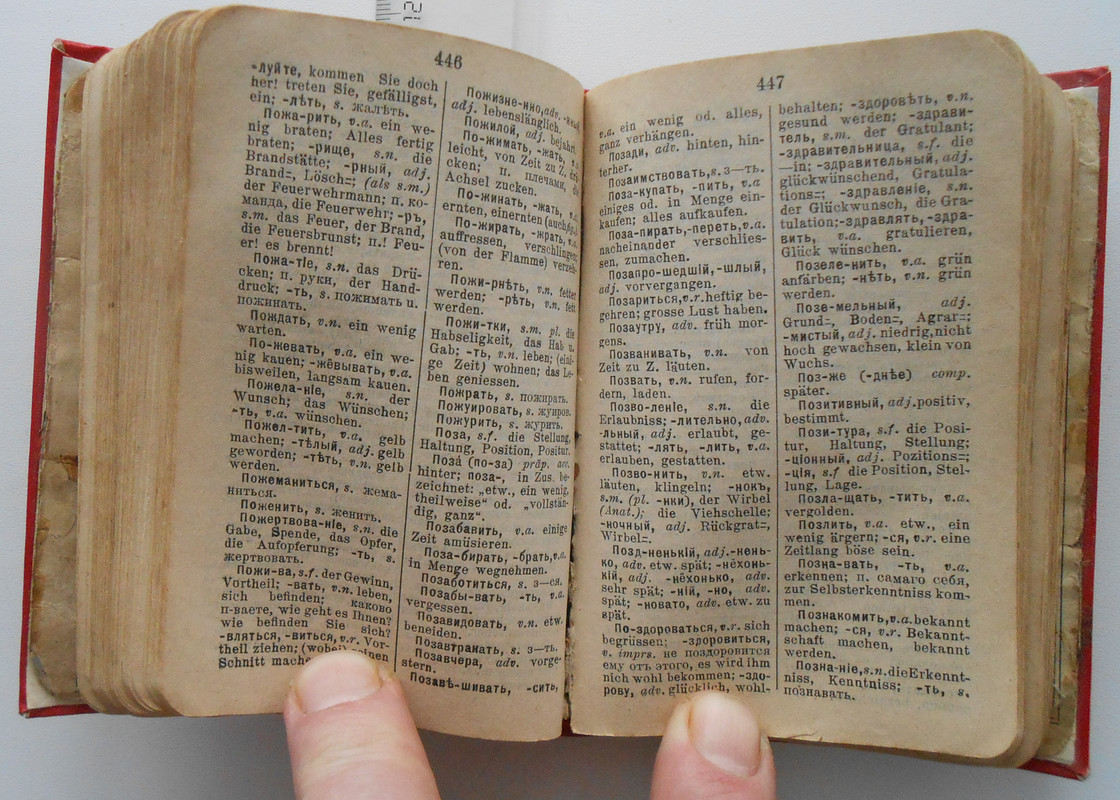 12
446
-луйте, kommen Sie doch
her! treten Sie, gefälligst,
ein; -лѣть, s. жалѣть.
Пожа-рить, v.a. ein we-
nig braten; Alles fertig
braten; -рище, s.n. die
Brandstätte; -рный, adj.
Brand=, Lösch=; (als s.m.)
der Feuerwehrmann; п. ко-
манда, die Feuerwehr; -ръ,
s.m. das Feuer, der Brand,
die Feuersbrunst; п.! Feu-
er! es brennt!
Пожа-тіе, s.n. das Drü-
cken; п. руки, der Hand-
druck; -ть, s. пожимать u.
пожинать.
Пождать, v.n. ein wenig
warten.
По-жевать, v.a. ein we-
nig kauen; -жёвывать, v.a.
bisweilen, langsam kauen.
Пожела-ніе, s.n. der
Wunsch; das Wünschen;
-ть, v.a. wünschen.
Пожел-тить, v.a. gelb
machen; -тѣлый, adj. gelb
geworden; -тѣть, v.n. gelb
werden.
Пожеманиться, s. жема-
ниться.
Поженить, s. женить.
Пожертвова-ніе, s.n. die
Gabe, Spende, das Opfer,
die Aufopferung; -ть, s.
жертвовать.
Пожи-ва, s.f. der Gewinn,
Vortheil; -вать, v.n. leben,
sich befinden; каково
п-ваете, wie geht es Ihnen?
wie befinden Sie sich?
-вляться, -виться, v.r. Vor-
theil ziehen; (wobei)
Schnitt
Пожизне-нно, adv.
adj. lebenslänglich.
Пожилой, adj. bejahrt
По-жимать, -жать, v.a.
leicht, von Zeit zu Z. drü-
cken; п. плечами, die
Achsel zucken.
По-жинать, -жать, v.a.
ernten, einernten (auch fig.)
По-жирать, -жрать, v.a.
auffressen, verschlingen;
(von der Flamme) verzeh-
ren.
Пожи-рнѣть, v.n. fetter
werden; -рѣть, v.n. fett
werden.
Пожи-тки, s.m. pl. die
Habseligkeit, das Hab u.
Gab; -ть, v.n. leben; (eini-
ge Zeit) wohnen; das Le-
ben geniessen.
Пожрать, s. пожирать.
Пожуировать, s. жуиров.
Пожурить, s. журить.
Поза, s.f. die Stellung,
Haltung, Position, Positur.
Поза́ (по-за) präp. acc.
hinter; поза-, in Zus. be-
zeichnet: „etw., ein wenig,
theilweise“ od. „vollstän-
dig, ganz“.
Позабавить, v.a. einige
Zeit amüsieren.
Поза-бирать, -брать, v.a.
in Menge wegnehmen.
Позаботиться, s. з—ся.
Позабы-вать, -ть, v.a.
vergessen.
Позавидовать, v.n. etw.
beneiden.
Позавтракать, s. з—ть.
Позавчера, adv. vorge-
stern.
Позавѣ-шивать, -сить,
447
v.a. ein wenig od. alles,
ganz verhängen.
Позади, adv. hinten, hin-
terher.
Позаимствовать, s. з—ть.
Поза-купать, -пить, v.a
einiges od. in Menge ein-
kaufen; alles aufkaufen.
Поза-пирать, -переть, v.a.
nacheinander verschlies-
sen, zumachen.
Позапро-шедшій, -шлый,
adj. vorvergangen.
Позариться, v.r. heftig be-
gehren; grosse Lust haben.
Позаутру, adv. früh mor-
gens.
Позванивать, v.n. von
Zeit zu Z. läuten.
Позвать, v.n. rufen, for-
dern, laden.
Позво-леніе, s.n. die
Erlaubniss; -лительно, adv.
-льный, adj. erlaubt, ge-
stattet; -лять, -лить, v.a.
erlauben, gestatten.
Позво-нить, v.n. etw.
läuten, klingeln; -нокъ,
s.m. (pl. -нки), der Wirbel
(Anat.); die Viehschelle;
-ночный, adj. Rückgrat=,
Wirbel=.
Позд-ненькій, adj. -нень-
ко, adv. etw. spät; -нёхонь-
кій, adj. -нёхонько, adv.
sehr spät; -ній, -но, adv.
spät; -новато, adv. etw. zu
spät.
По-здороваться, v.r. sich
begrüssen; -здоровиться,
v. imprs. не поздоровится
ему отъ этого, es wird ihm
nich wohl bekommen; -здо-
рову, adv. glücklich, wohl-
behalten; -здоровѣть, v.n.
gesund werden; -здрави-
тель, s.m. der Gratulant;
-здравительница, s.f. die
—in; -здравительный, adj.
glückwünschend, Gratula-
tions=; -здравленіе, s.n.
der Glückwunsch, die Gra-
tulation; -здравлять, -здра-
вить, v.a. gratulieren,
Glück wünschen.
Позеле-нить, v.a. grün
anfärben; -нѣть, v.n. grün
werden.
Позе-мельный, adj.
Grund=, Boden=, Agrar=;
-мистый, adj. niedrig, nicht
hoch gewachsen, klein von
Wuchs.
Поз-же (-днѣе) comp.
später.
Позитивный, adj. positiv,
bestimmt.
Пози-тура, s.f. die Posi-
tur, Haltung, Stellung;
-ціонный, adj. Pozitions=;
-ція, s.f die Position, Stel-
lung, Lage.
Позла-щать, -тить, v.a.
vergolden.
Позлить, v.a. etw., ein
wenig ärgern; -ся, v.r. eine
Zeitlang böse sein.
Позна-вать, -ть, v.a.
erkennen; п. самаго себя,
zur Selbsterkenntniss kom-
men.
Познакомить, v.a. bekannt
machen; -ся, v.r. Bekannt-
schaft machen, bekannt
werden.
Позна-ніе, s.n. die Erkennt-
niss, Kenntniss; -ть, s.
познавать.